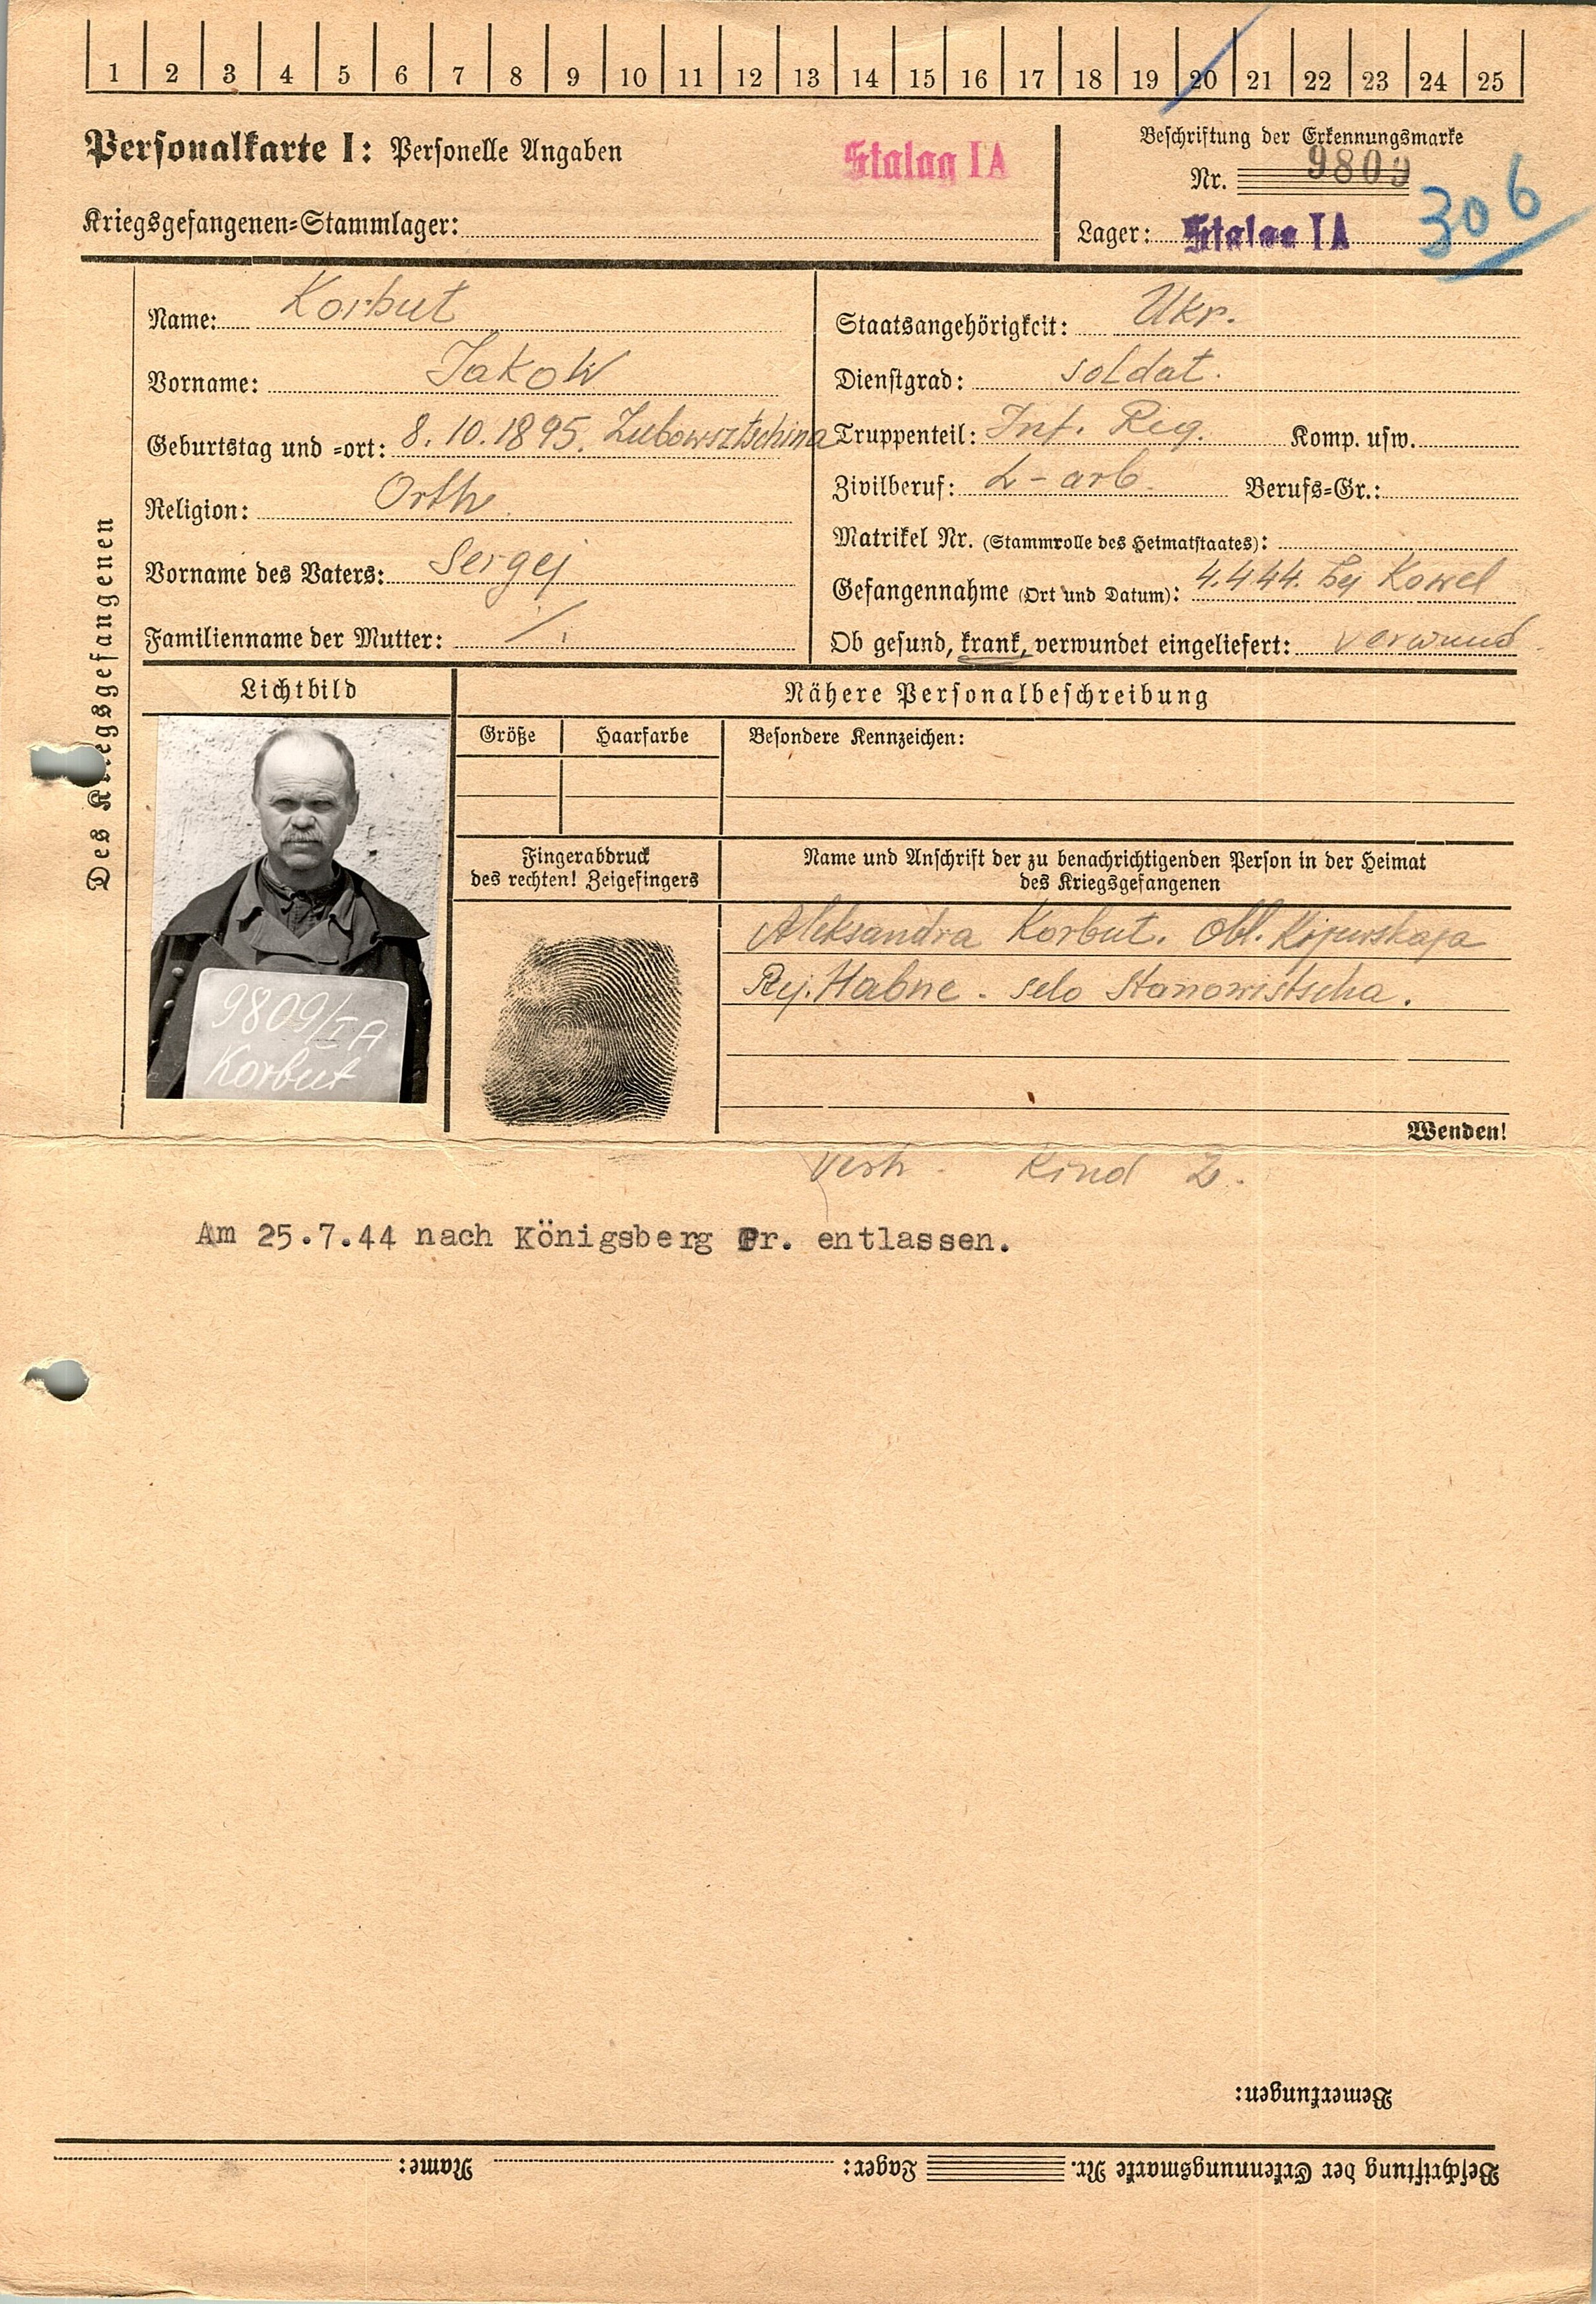 1 2 3 4 5 6 7 8 9 10 11 12 13 14 15 16 17 18 19 20 21 22 23 24 25
Personalkarte I: Personelle Angaben
Stalag I A
Kriegsgefangenen=Stammlager:
Beschriftung der Erkennungsmarke
Nr. 9809
Lager: Stalag I A
306
Des Kriegsgefangenen
Name: Korbut
Vorname: Jakow
Geburtstag und =ort: 8.10.1895. Zubowsztschina
Religion: Orth.
Vorname des Vaters: Sergej
Familienname der Mutter: ./.
Staatsangehörigkeit: Ukr.
Dienstgrad: soldat.
Truppenteil: Inf. Reg. Komp. usw.
Zivilberuf: L-arb. Berufs=Gr.:
Matrikel Nr. (Stammrolle des Heimatstaates):
Gefangennahme (Ort und Datum): 4.4.44. bej Kowel
Ob gesund, krank, verwundet eingeliefert: verwund.
Lichtbild
9809/I A
Korbut
Nähere Personalbeschreibung
Größe
Haarfarbe
Besondere Kennzeichen:
Fingerabdruck
des rechten! Zeigefingers
Name und Anschrift der zu benachrichtigenden Person in der Heimat
des Kriegsgefangenen
Aleksandra Korbut. Obl. Kijewskaja
Rej. Habne. selo Stanowistscha.
Wenden!
Verh. Kind 2.
Am 25.7.44 nach Königsberg Pr. entlassen.
Bemerkungen:
Beschriftung der Erkennungsmarke Nr. Lager: Name: